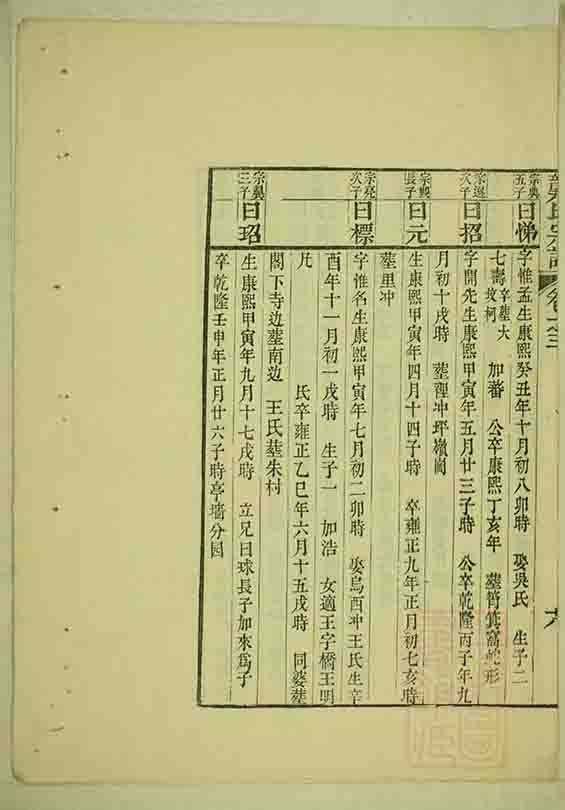 宗興五子 曰悌 字惟孟生康熙癸丑年十月初八卯時 娶吳氏 生子二
七壽 辛墓大坟柯 加蕃 公卒康熙丁亥年 墓筲箕窩蛇形
次子 曰招 字開先生康熙甲寅年五月廿三子時 公卒乾隆丙子年九
月初十戌時 墓裡冲坪嶺崗
長子 曰元 生康熙甲寅年四月十四子時 卒雍正九年正月初七亥時
墓里冲
宗亮次子 曰標 字惟名生康熙甲寅年七月初二卯時 娶烏西冲王氏生辛
酉年十一月初一戌時 生子一 加浩 女適王字橋王明
凡 氏卒雍正乙巳年六月十五戌時 同婆墓
閣下寺边墓南边 王氏墓朱村
宗興三子 曰玿 生康熙甲寅年九月十七戌時 立兄曰球長子加來爲子
卒乾隆壬申年正月廿六子時亭墻分园
氏宗譜